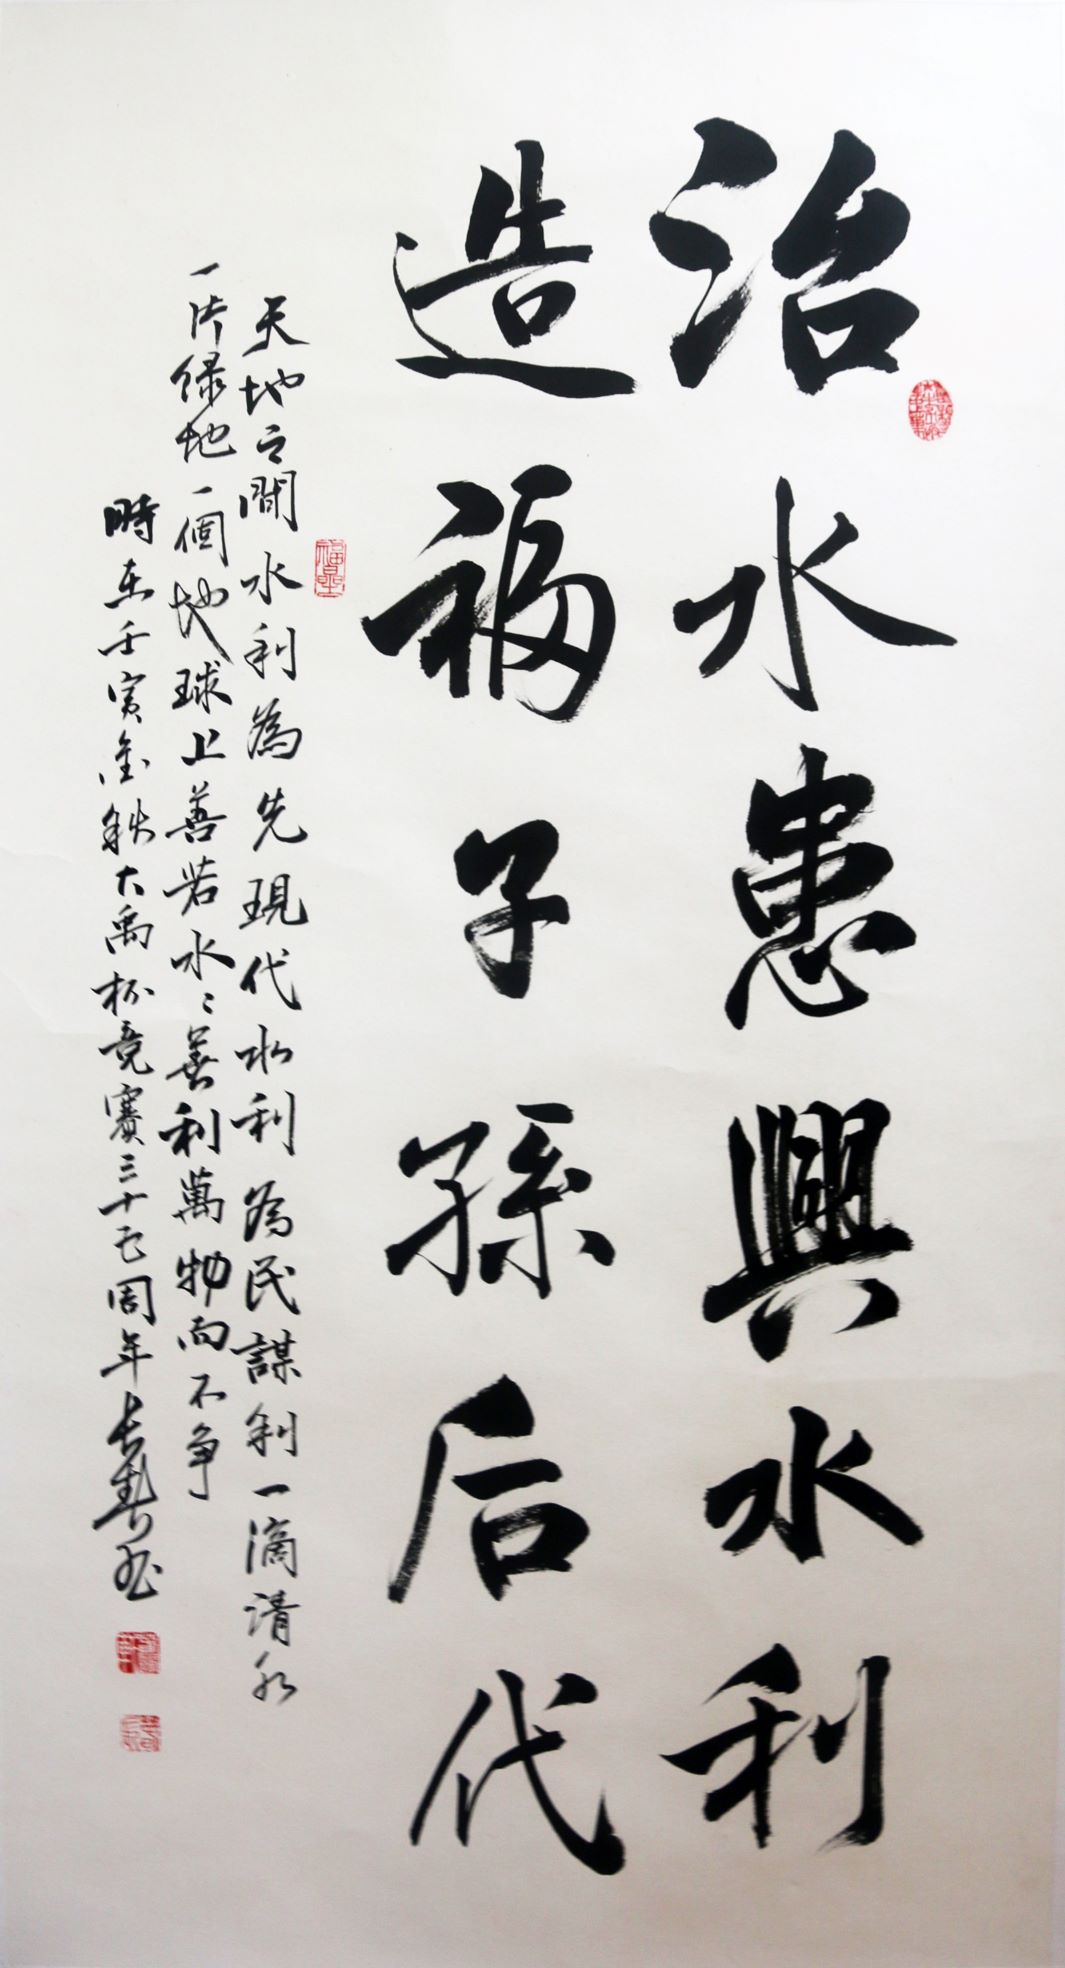 治水患興水利
造福子孫后代
天地之間水利為先現代水利為民謀利一滴清水
一片绿地一個地球上善若水〻善利萬物而不争
時在壬寅金秋大禹杯竟賽三十五周年長壽书
福星